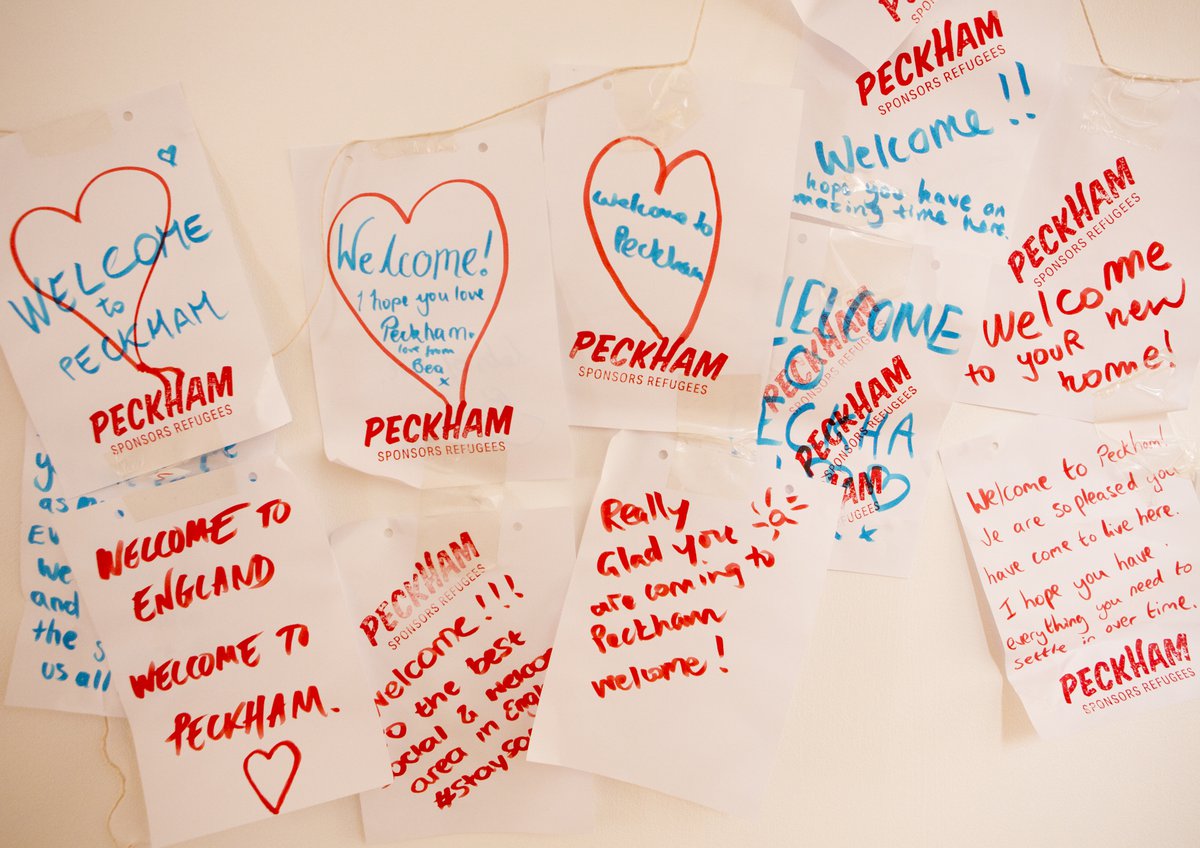 WELCOME
to
PECKHAM
PECKHAM
SPONSORS REFUGEES
Welcome!
I hope you love
Peckham.
love from
Bea
x
PECKHAM
SPONSORS REFUGEES
welcome to
Peckham
PECKHAM
SPONSORS REFUGEES
PECKHAM
SPONSORS REFUGEES
Welcome!!
hope you have an
amazing time here.
PECKHAM
SPONSORS REFUGEES
Welcome
to your new
home!
WELCOME
PECKHAM
SPONSORS REFUGEES
PECKHAM
SPONSORS REFUGEES
and
the
us all
WELCOME TO
ENGLAND
WELCOME TO
PECKHAM.
PECKHAM
SPONSORS REFUGEES
Welcome!!!
to the best
social &
area in
Really
Glad you
are coming to
Peckham
welcome!
Welcome to Peckham!
We are so pleased you
have come to live here.
I hope you have
everything you need to
settle in over time.
PECKHAM
SPONSORS REFUGEES